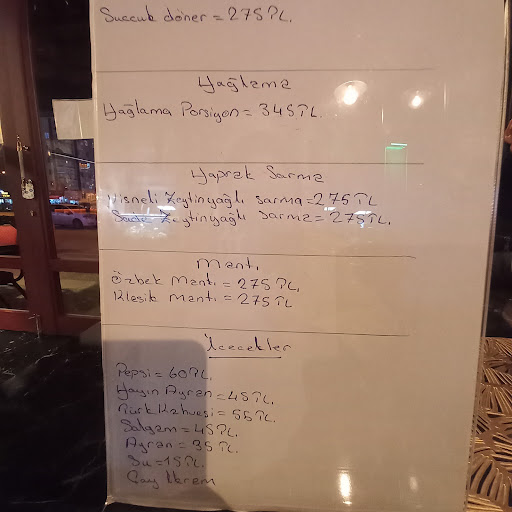 Succuk döner = 275 TL.
Yağlama
Yağlama Porsiyon = 345 TL.
Yaprak Sarma
Vişneli Zeytinyağlı sarma = 275 TL
Sade Zeytinyağlı sarma = 275 TL.
Mantı
Özbek Mantı = 275 TL.
Klasik Mantı = 275 TL
İçecekler
Pepsi = 60 TL.
Yayın Ayran = 45 TL.
Türk Kahvesi = 55 TL.
Şalgam = 45 TL.
Ayran = 35 TL.
Su = 15 TL.
Çay İkram